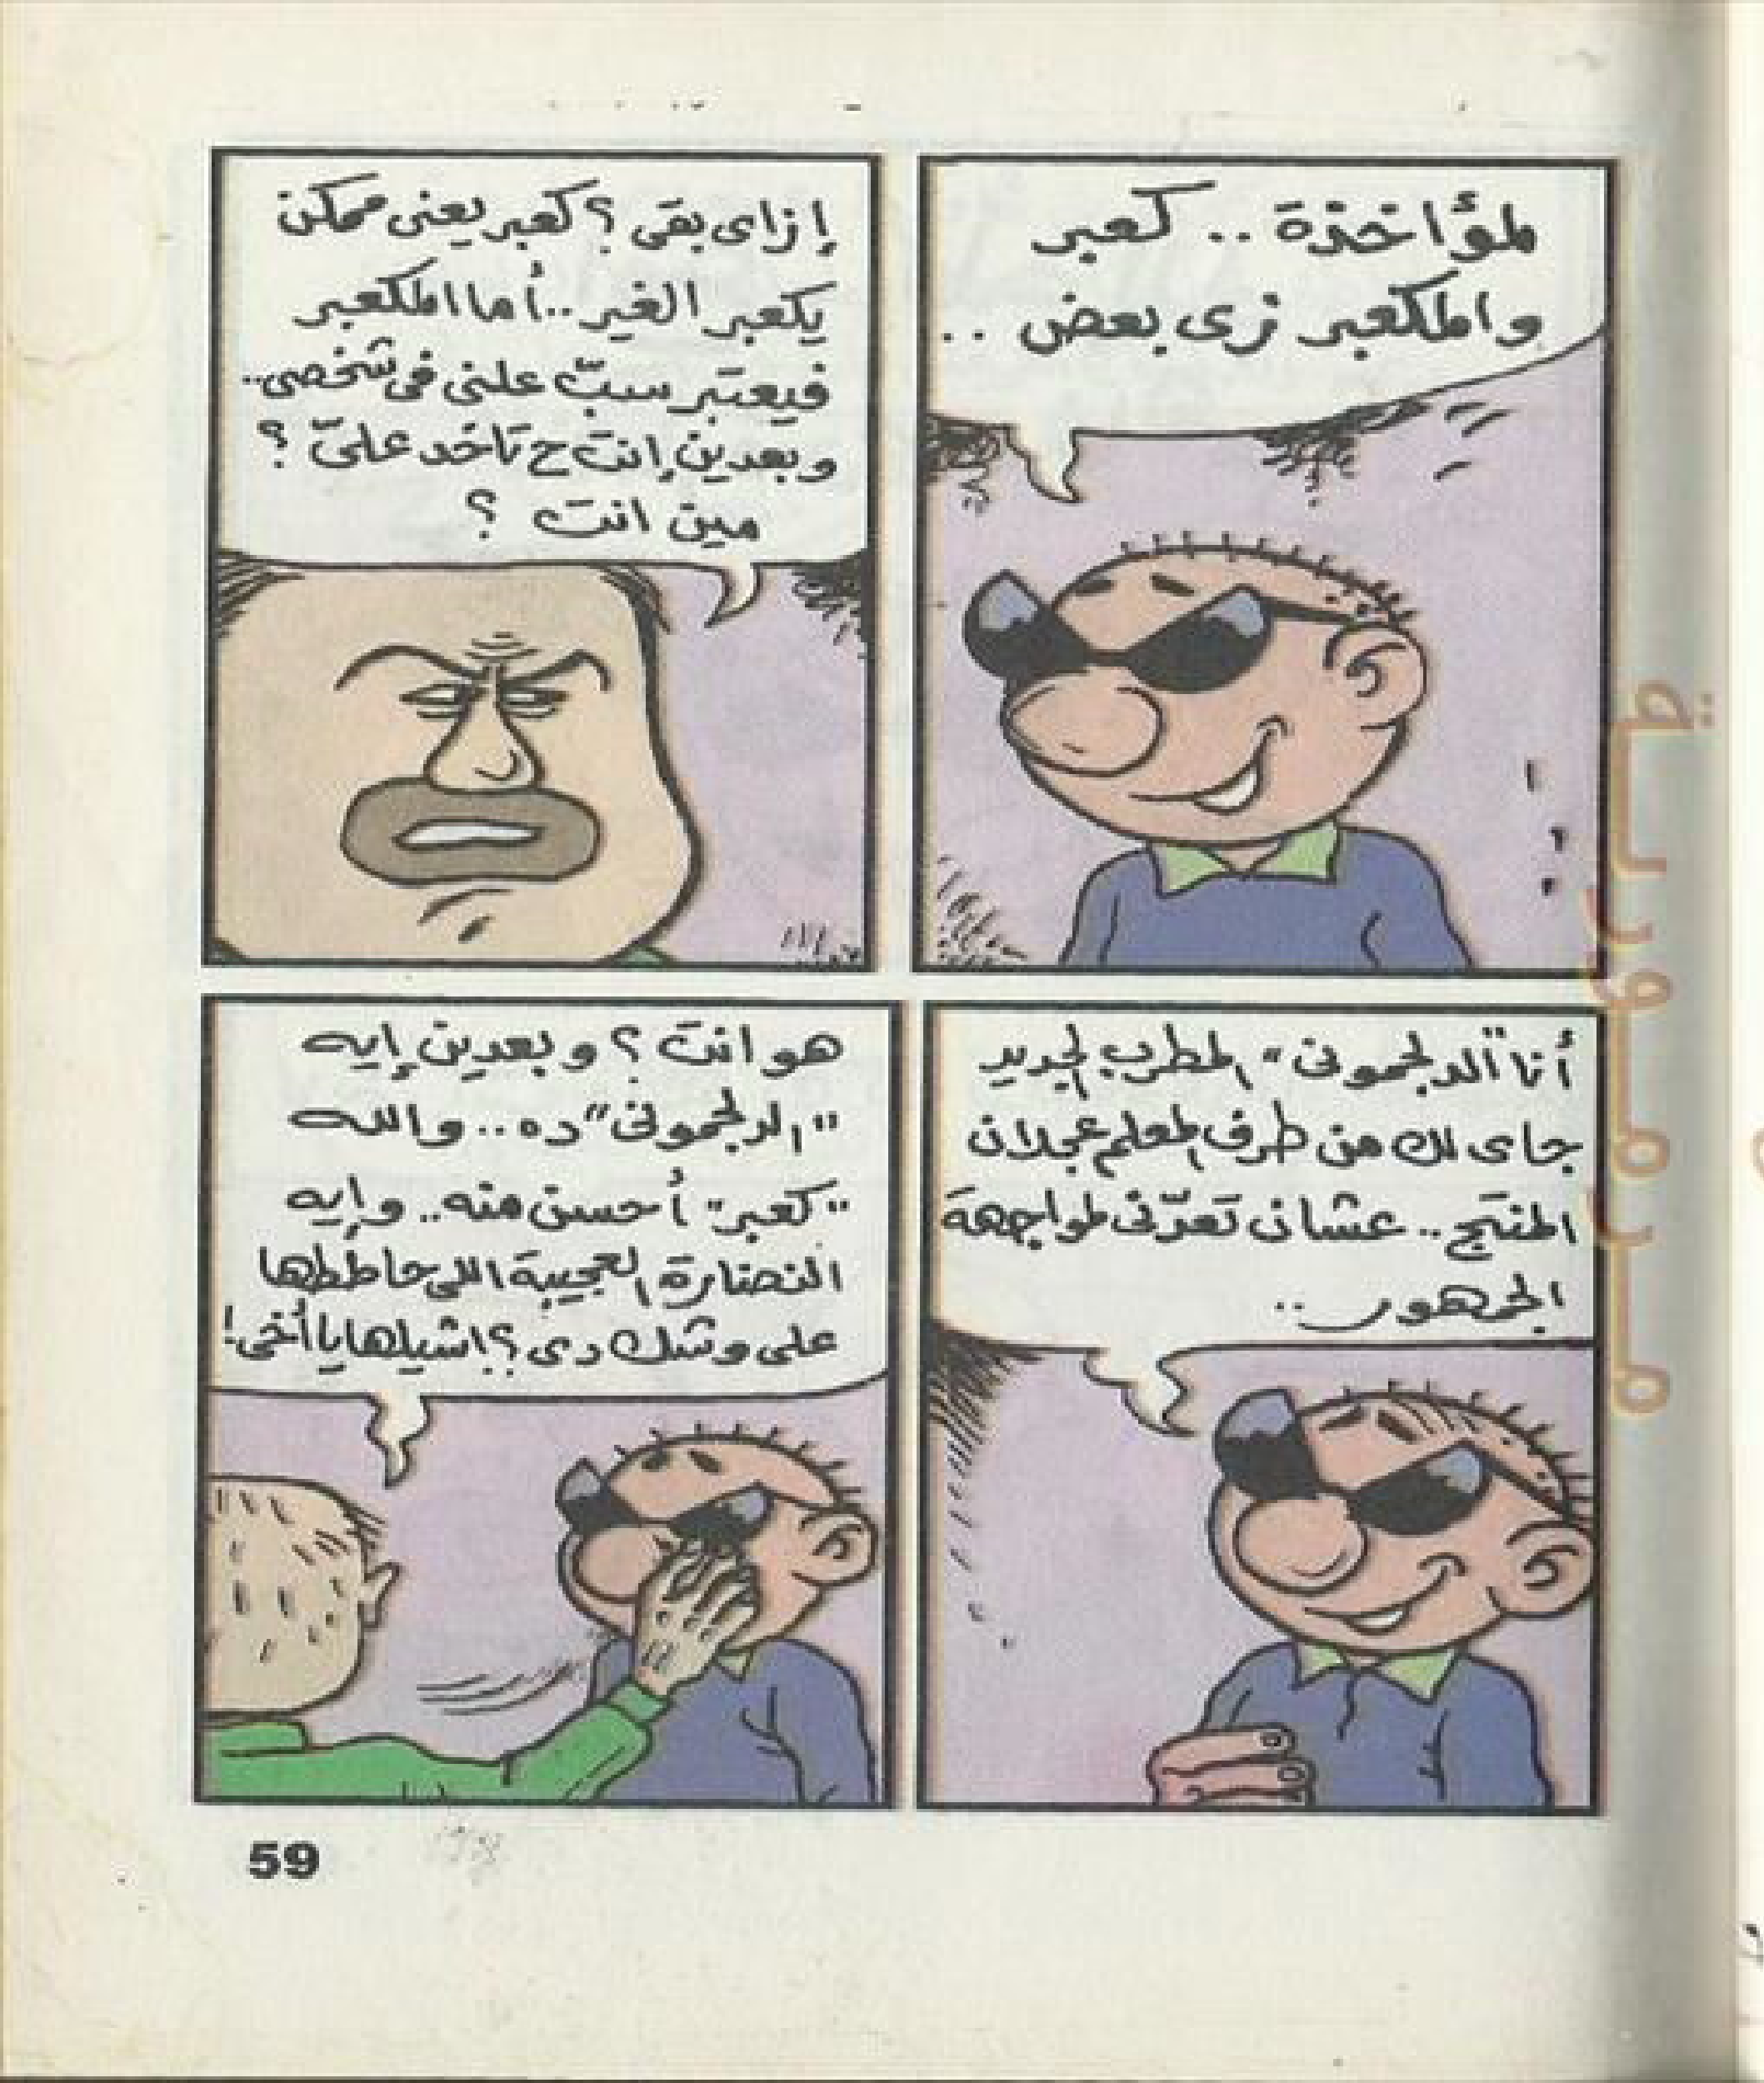 لمؤاخذة .. كعبر
والمكعبر زى بعض ..
إزاى بقى ؟ كعبر يعنى ممكن
يكعبر الغير .. أما المكعبر
فيعتبر سبّ علنى فى شخصى ..
وبعدين إنت ح تاخد علىّ ؟
مين انت ؟
أنا "الدلجمونى" المطرب الجديد
جاى لك من طرف المعلم عجلان
المنتج .. عشان تعدّنى لمواجهة
الجمهور ..
هو انت ؟ وبعدين إيه
"الدلجمونى" ده .. والله
"كعبر" أحسن منه .. وإيه
النضارة العجيبة اللى حاططها
على وشك دى ؟ اشيلها يا أخى !
59
مرمورية